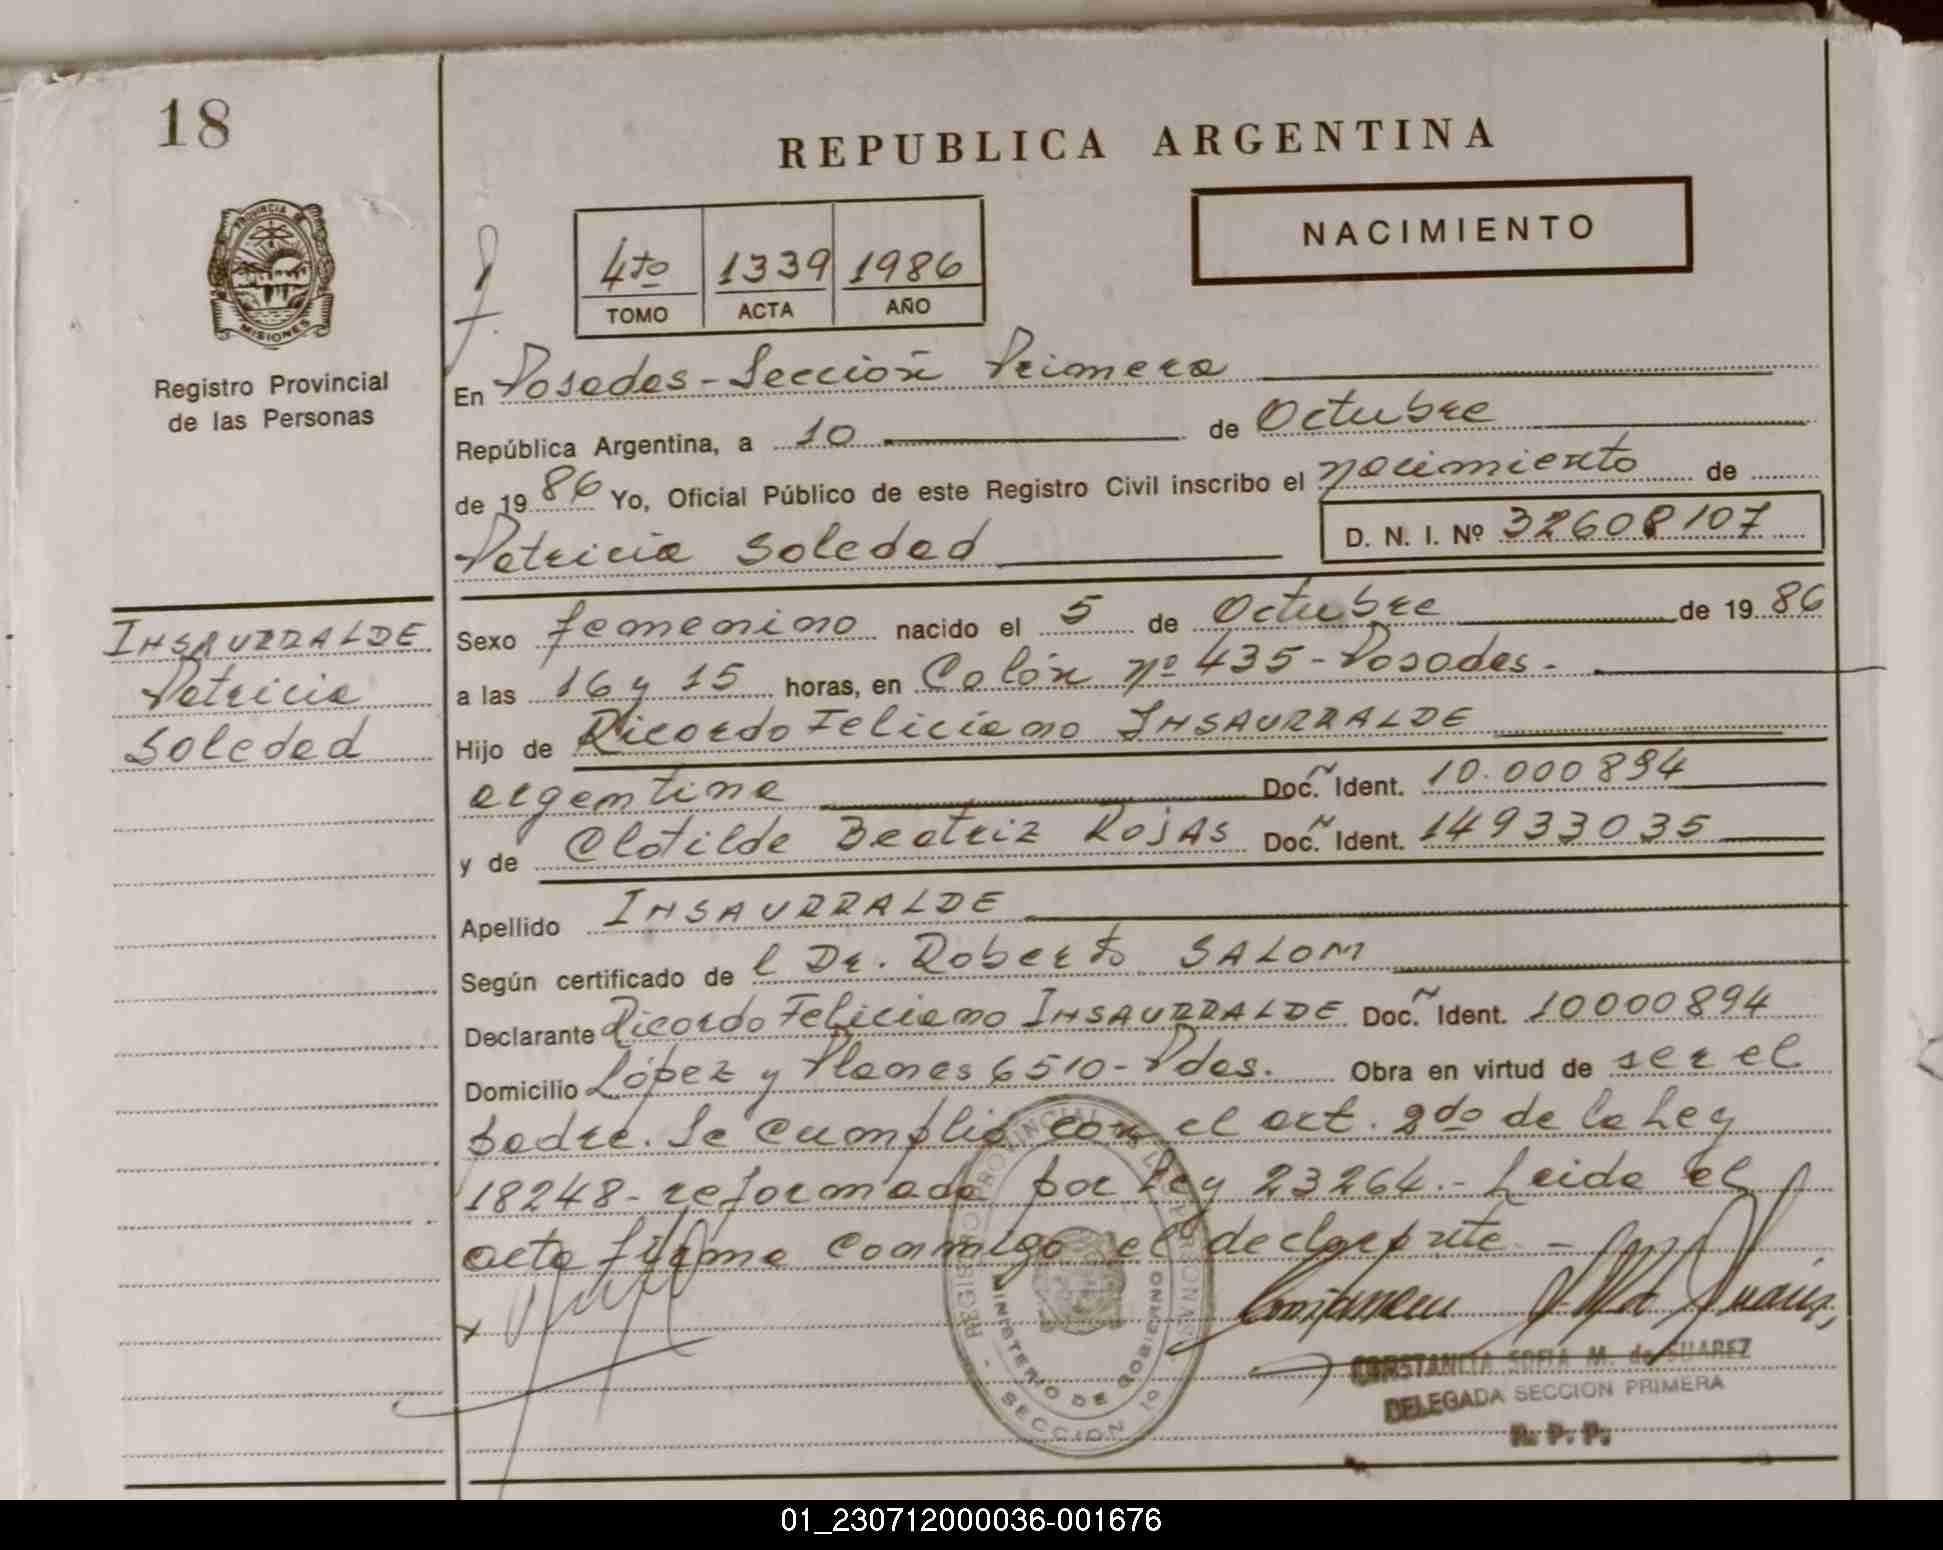 18
REPUBLICA ARGENTINA
NACIMIENTO
4to 1339 1986
TOMO ACTA AÑO
PROVINCIA DE
MISIONES
Registro Provincial
de las Personas
En Posadas - Sección Primera
República Argentina, a 10 de Octubre
de 1986 Yo, Oficial Público de este Registro Civil inscribo el nacimiento de
Patricia Soledad D. N. I. Nº 32608107
INSAURRALDE
Patricia
Soledad
Sexo femenino nacido el 5 de Octubre de 1986
a las 16 y 15 horas, en Colón nº 435 - Posadas.-
Hijo de Ricardo Feliciano INSAURRALDE
argentina Doc. Ident. 10.000894
y de Clotilde Beatriz ROJAS Doc. Ident. 14933035
Apellido INSAURRALDE
Según certificado de l Dr. Roberto SALOM
Declarante Ricardo Feliciano INSAURRALDE Doc. Ident. 10000894
Domicilio López y Planes 6510 - Pdas. Obra en virtud de ser el
padre. Se cumplió con el art. 2do de la Ley
18248 - reformada por Ley 23264.- Leida el
acta firma conmigo el declarante -
REGISTRO PROVINCIAL DE LAS PERSONAS
MINISTERIO DE GOBIERNO
SECCION 1º
CONSTANCIA SOFIA M. de SUAREZ
DELEGADA SECCION PRIMERA
R. P. P.
01_230712000036-001676